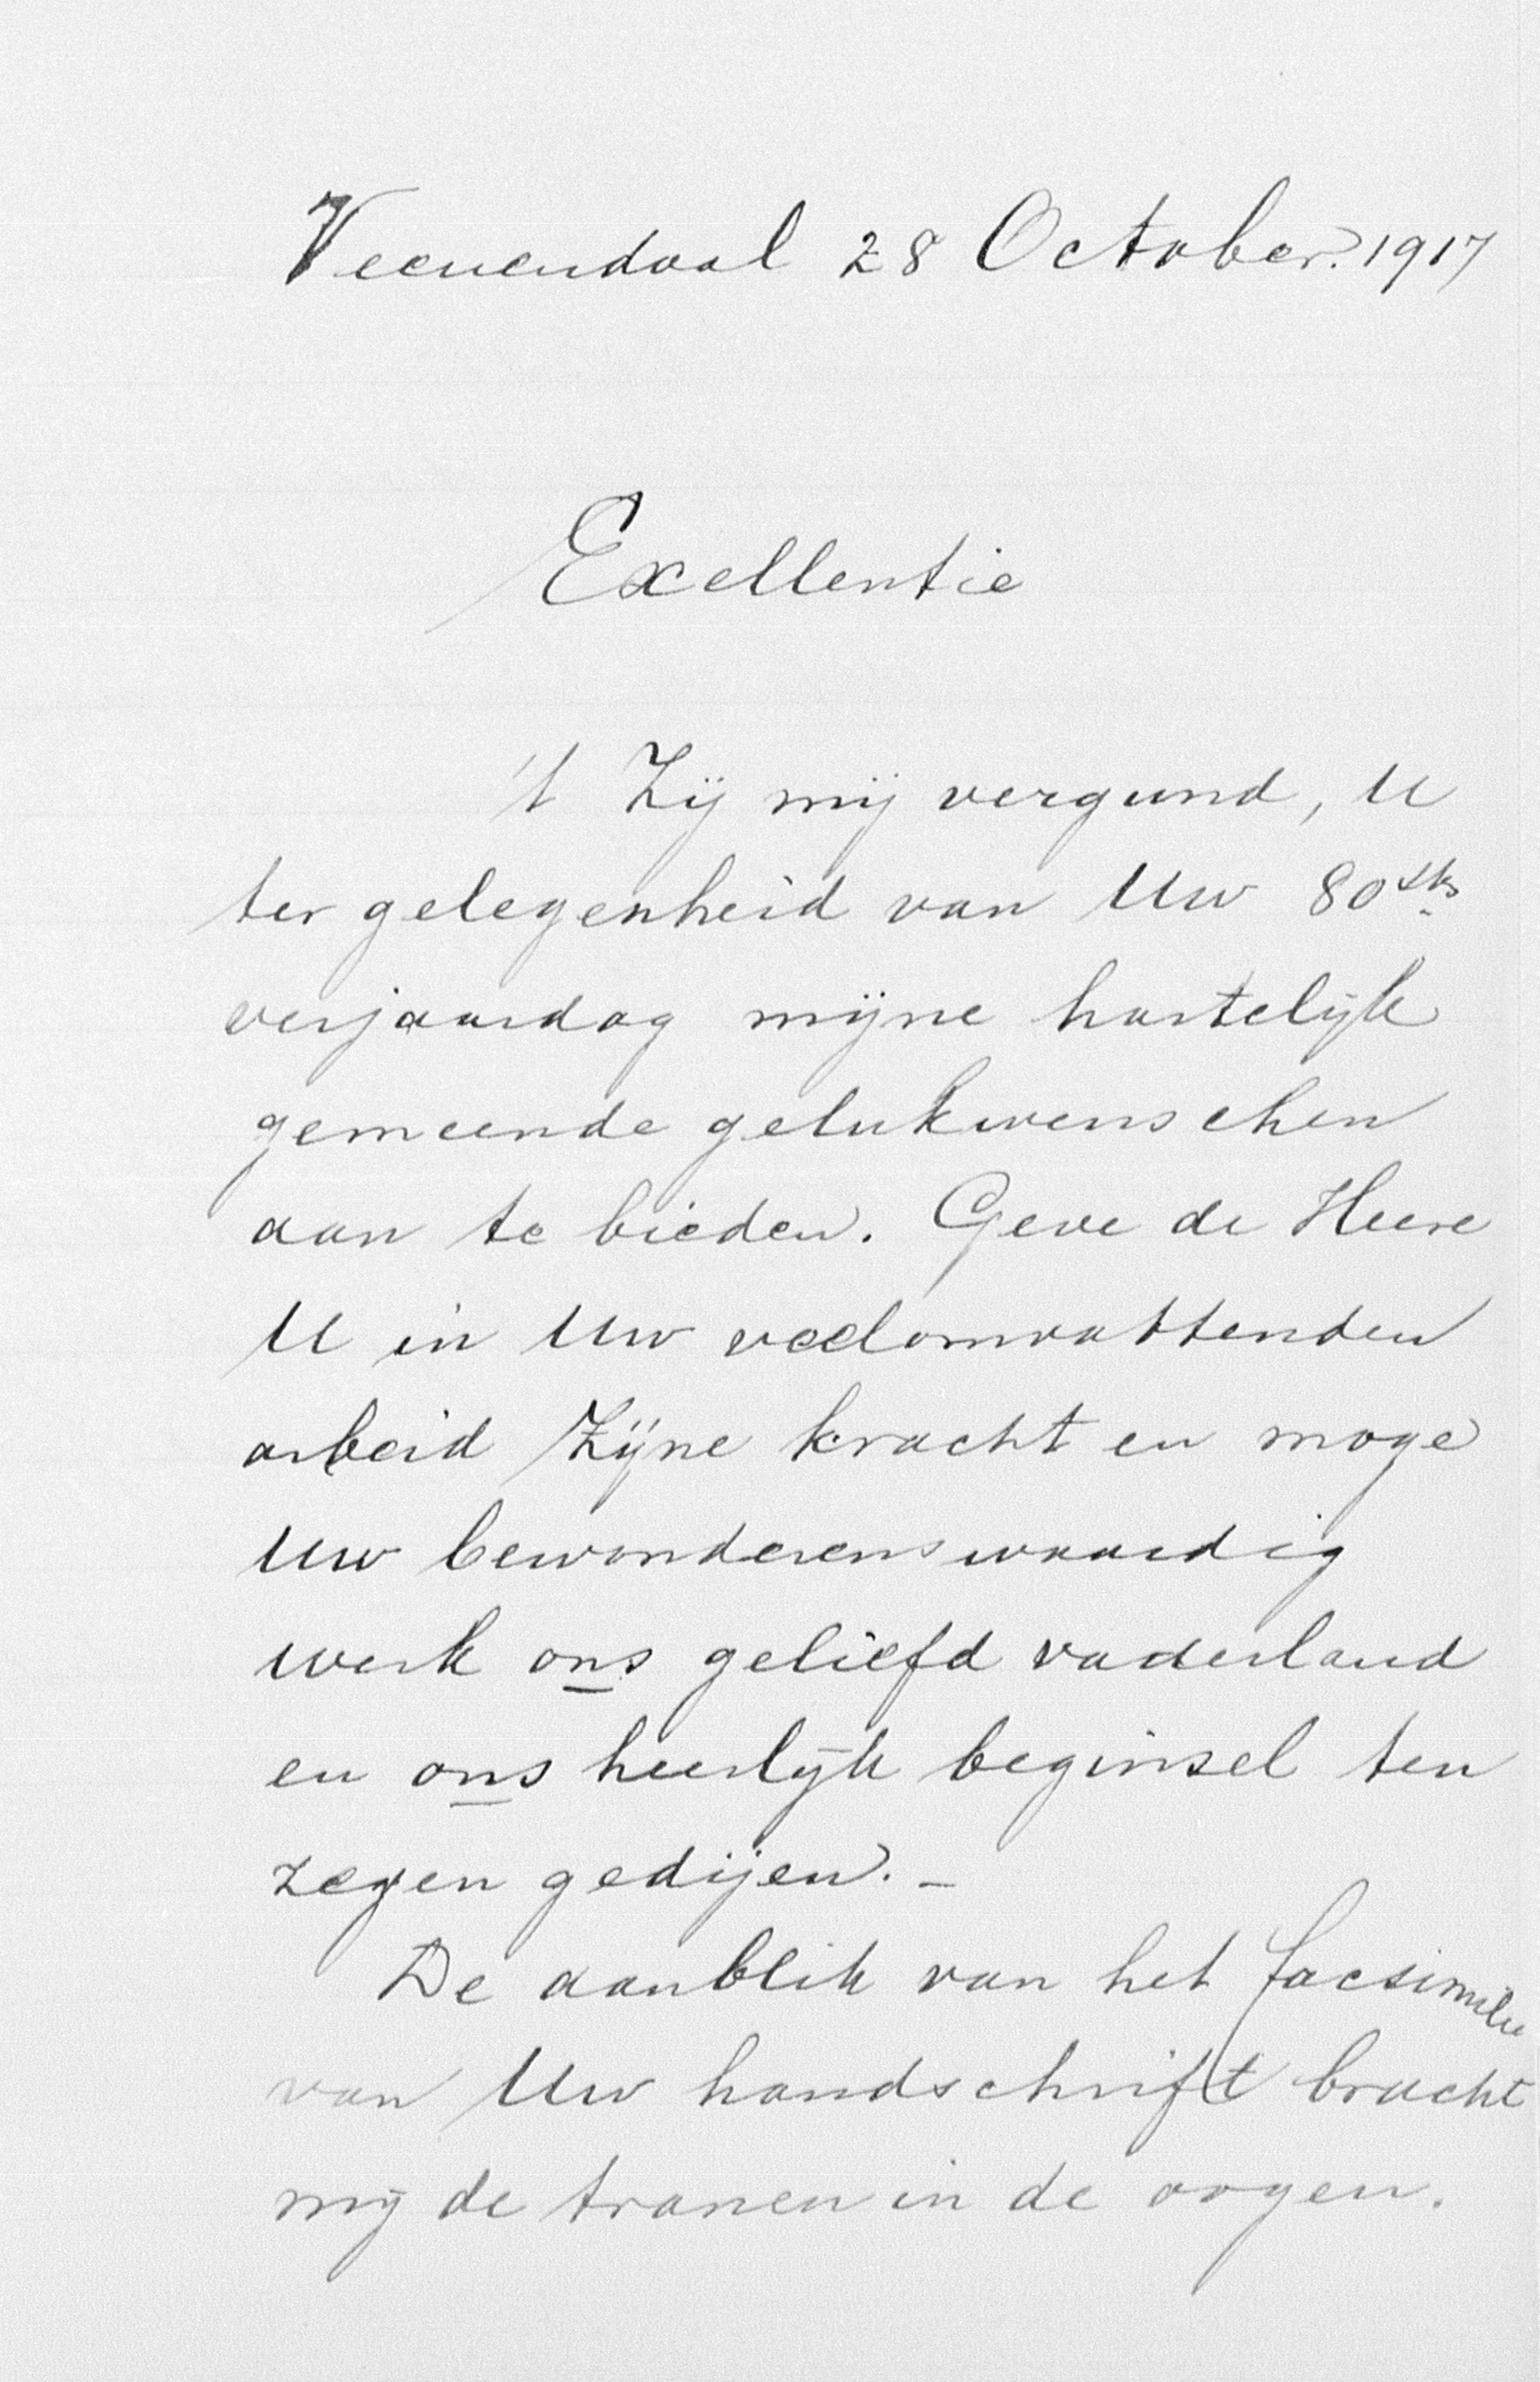 Veenendaal 28 October. 1917
Exellentie
't Zij mij vergund, U
ter gelegenheid van Uw 80ste
verjaardag mijne hartelijk
gemeende gelukwenschen
aan te bieden. Geve de Heere
U in Uw veelomvattenden
arbeid Zijne kracht en moge
Uw bewonderenswaardig
werk ons geliefd vaderland
en ons heerlijk beginsel ten
zegen gedijen. -
De aanblik van het facsimilé
van Uw handschrift bracht
mij de tranen in de oogen.